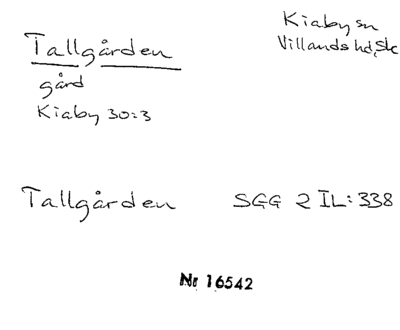 Tallgården
gård
Kiaby 30:3
Kiaby sn
Villands hd, Sk
Tallgården SGG 2 IL: 338
Nr 16542